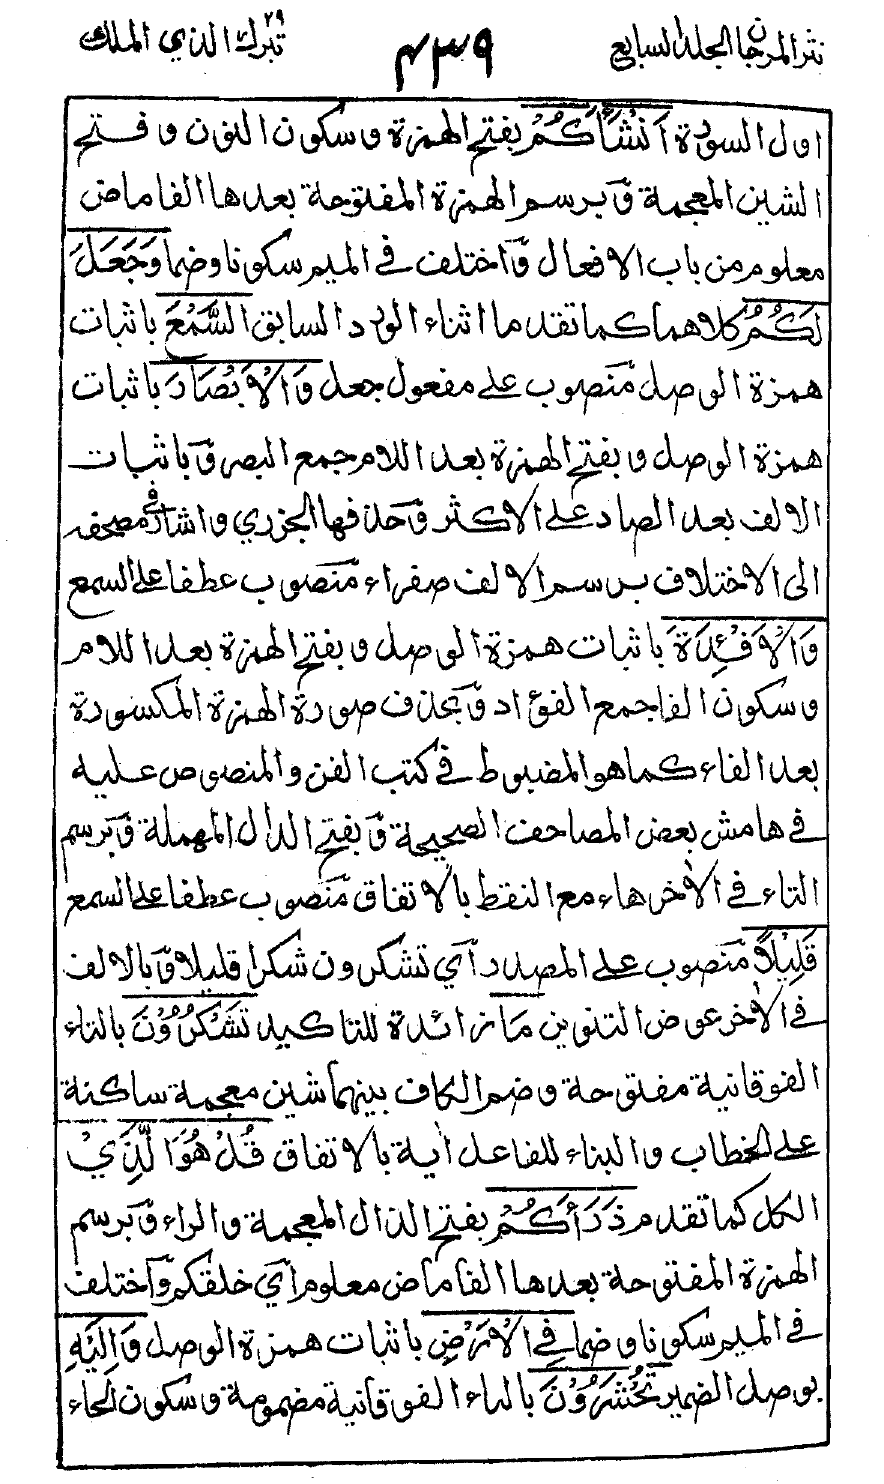 نثر المرجان الجلد السابع ٤٣٩ تبرك الذي الملك ٢٩
اول السورة اَنْشَاَكُمْ بفتح الهمزة وسكون النون وفتح
الشين المعجمة وٓبرسم الهمزة المفتوحة بعدها الفا ماض
معلوم من باب الافعال وٓاختلف في الميم سكونا وضما وَجَعَلَ
لَكُمُ كلاهما كما تقدما اثناء الورد السابق السَّمْعَ باثبات
همزة الوصل منصوب على مفعول جعل وَالْاَبْصَارَ باثبات
همزة الوصل وبفتح الهمزة بعد اللام جمع البصر وٓباثبات
الالف بعد الصاد على الاكثر وٓحذفها الجزري واشار في مصحفه
الى الاختلاف برسم الالف صفراء منصوب عطفا على السمع
وَالْاَفْئِدَةَ باثبات همزة الوصل وبفتح الهمزة بعد اللام
وسكون الفا جمع الفؤاد وٓبحذف صورة الهمزة المكسورة
بعد الفاء كما هو المضبوط في كتب الفن والمنصوص عليه
في هامش بعض المصاحف الصحيحة وٓبفتح الدال المهملة وٓبرسم
التاء في الاٰخر هاء مع النقط بالاتفاق منصوب عطفا على السمع
قَلِيْلًا منصوب على المصدر آي تشكرون شكرا قليلا وٓبالالف
في الاٰخر عوض التنوين مَا زائدة للتاكيد تَشْكُرُوْنَ بالتاء
الفوقانية مفتوحة وضم الكاف بينهما شين معجمة ساكنة
على الخطاب والبناء للفاعل اٰية بالاتفاق قُلْ هُوَ الَّذِيْ
الكل كما تقدم ذَرَاَكُمْ بفتح الذال المعجمة والراء وٓبرسم
الهمزة المفتوحة بعدها الفا ماض معلوم آي خلقكم وٓاختلف
في الميم سكونا وضما فِي الْاَرْضِ باثبات همزة الوصل وَاِلَيْهِ
بوصل الضمير تُحْشَرُوْنَ بالتاء الفوقانية مضمومة وسكون الحاء